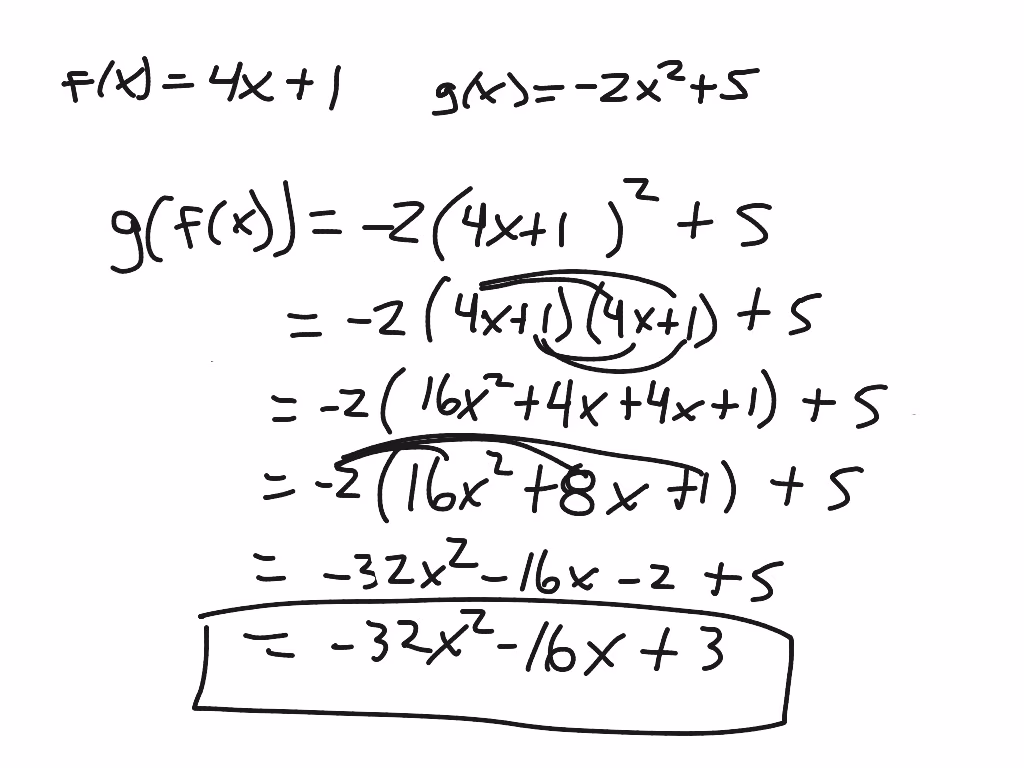 f(x) = 4x + 1 g(x) = -2x² + 5
g(f(x)) = -2(4x+1)² + 5
= -2(4x+1)(4x+1) + 5
= -2(16x² + 4x + 4x + 1) + 5
= -2(16x² + 8x + 1) + 5
= -32x² - 16x - 2 + 5
= -32x² - 16x + 3